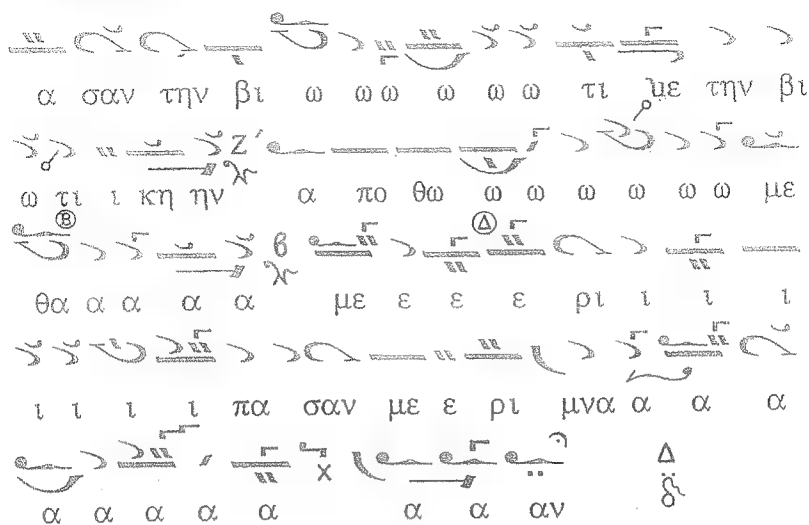 α σαν την βι ω ω ω ω ω ω τι με την βι
Ζ΄
ω τι ι κη ην α πο θω ω ω ω ω ω ω με
Β β Δ
θα α α α α με ε ε ε ρι ι ι ι
ι ι ι ι πα σαν με ε ρι μνα α α α
χ Δ
α α α α α α α αν